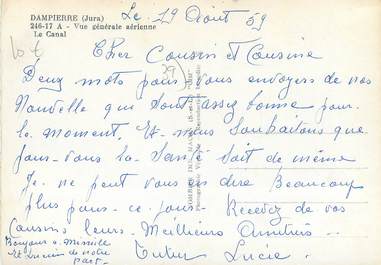 DAMPIERRE (Jura)
246-17 A - Vue générale aérienne
Le Canal
Le 19 Août 59
Cher Cousin et Cousine
Deux mots pour vous envoyer de nos
Nouvelle qui sont assez bonne pour
le moment. Et nous Souhaitons que
pour-vous la Santé soit de même
Je ne peut vous en dire Beaucoup
plus pour ce jour. Recevez de vos
Cousins leurs Meilleurs Amitiés
Lucie
Bonjour a
et Lucien de notre
part